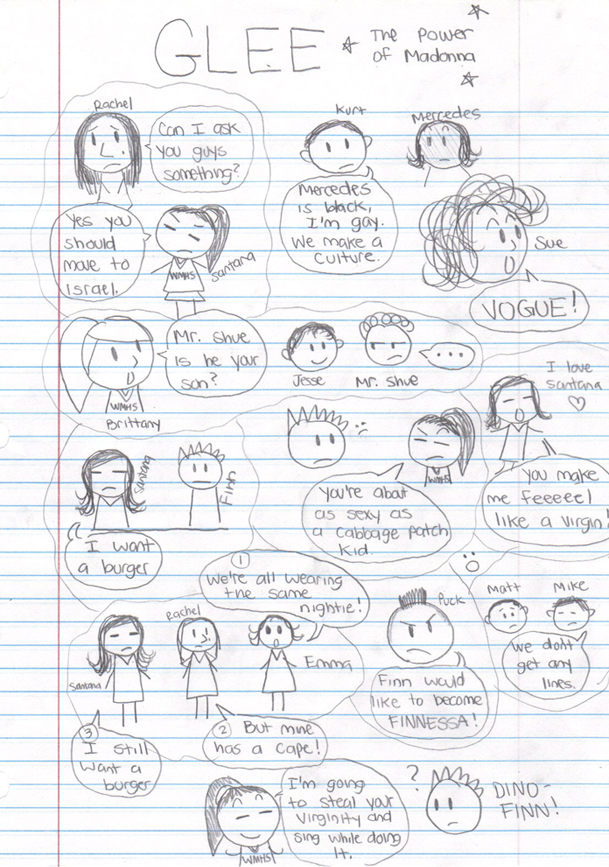 GLEE
The Power
of Madonna
Rachel
Can I ask
you guys
something?
Yes you
should
move to
Israel.
WMHS
Santana
Kurt
Mercedes
is black,
I'm gay.
We make a
culture.
Mercedes
Sue
VOGUE!
Brittany
WMHS
Mr. Shue
is he your
son?
Jesse
Mr. Shue
...
Santana
Finn
I want
a burger
WMHS
You're about
as sexy as
a cabbage patch
kid.
I love
santana
You make
me feeeeel
like a virgin!
①
We're all wearing
the same
nightie!
Santana
Rachel
Emma
②
But mine
has a cape!
③
I still
want a
burger
Puck
Finn would
like to become
FINNESSA!
Matt
Mike
We don't
get any
lines.
WMHS
I'm going
to steal your
virginity and
sing while doing
it.
?
DINO-
FINN!